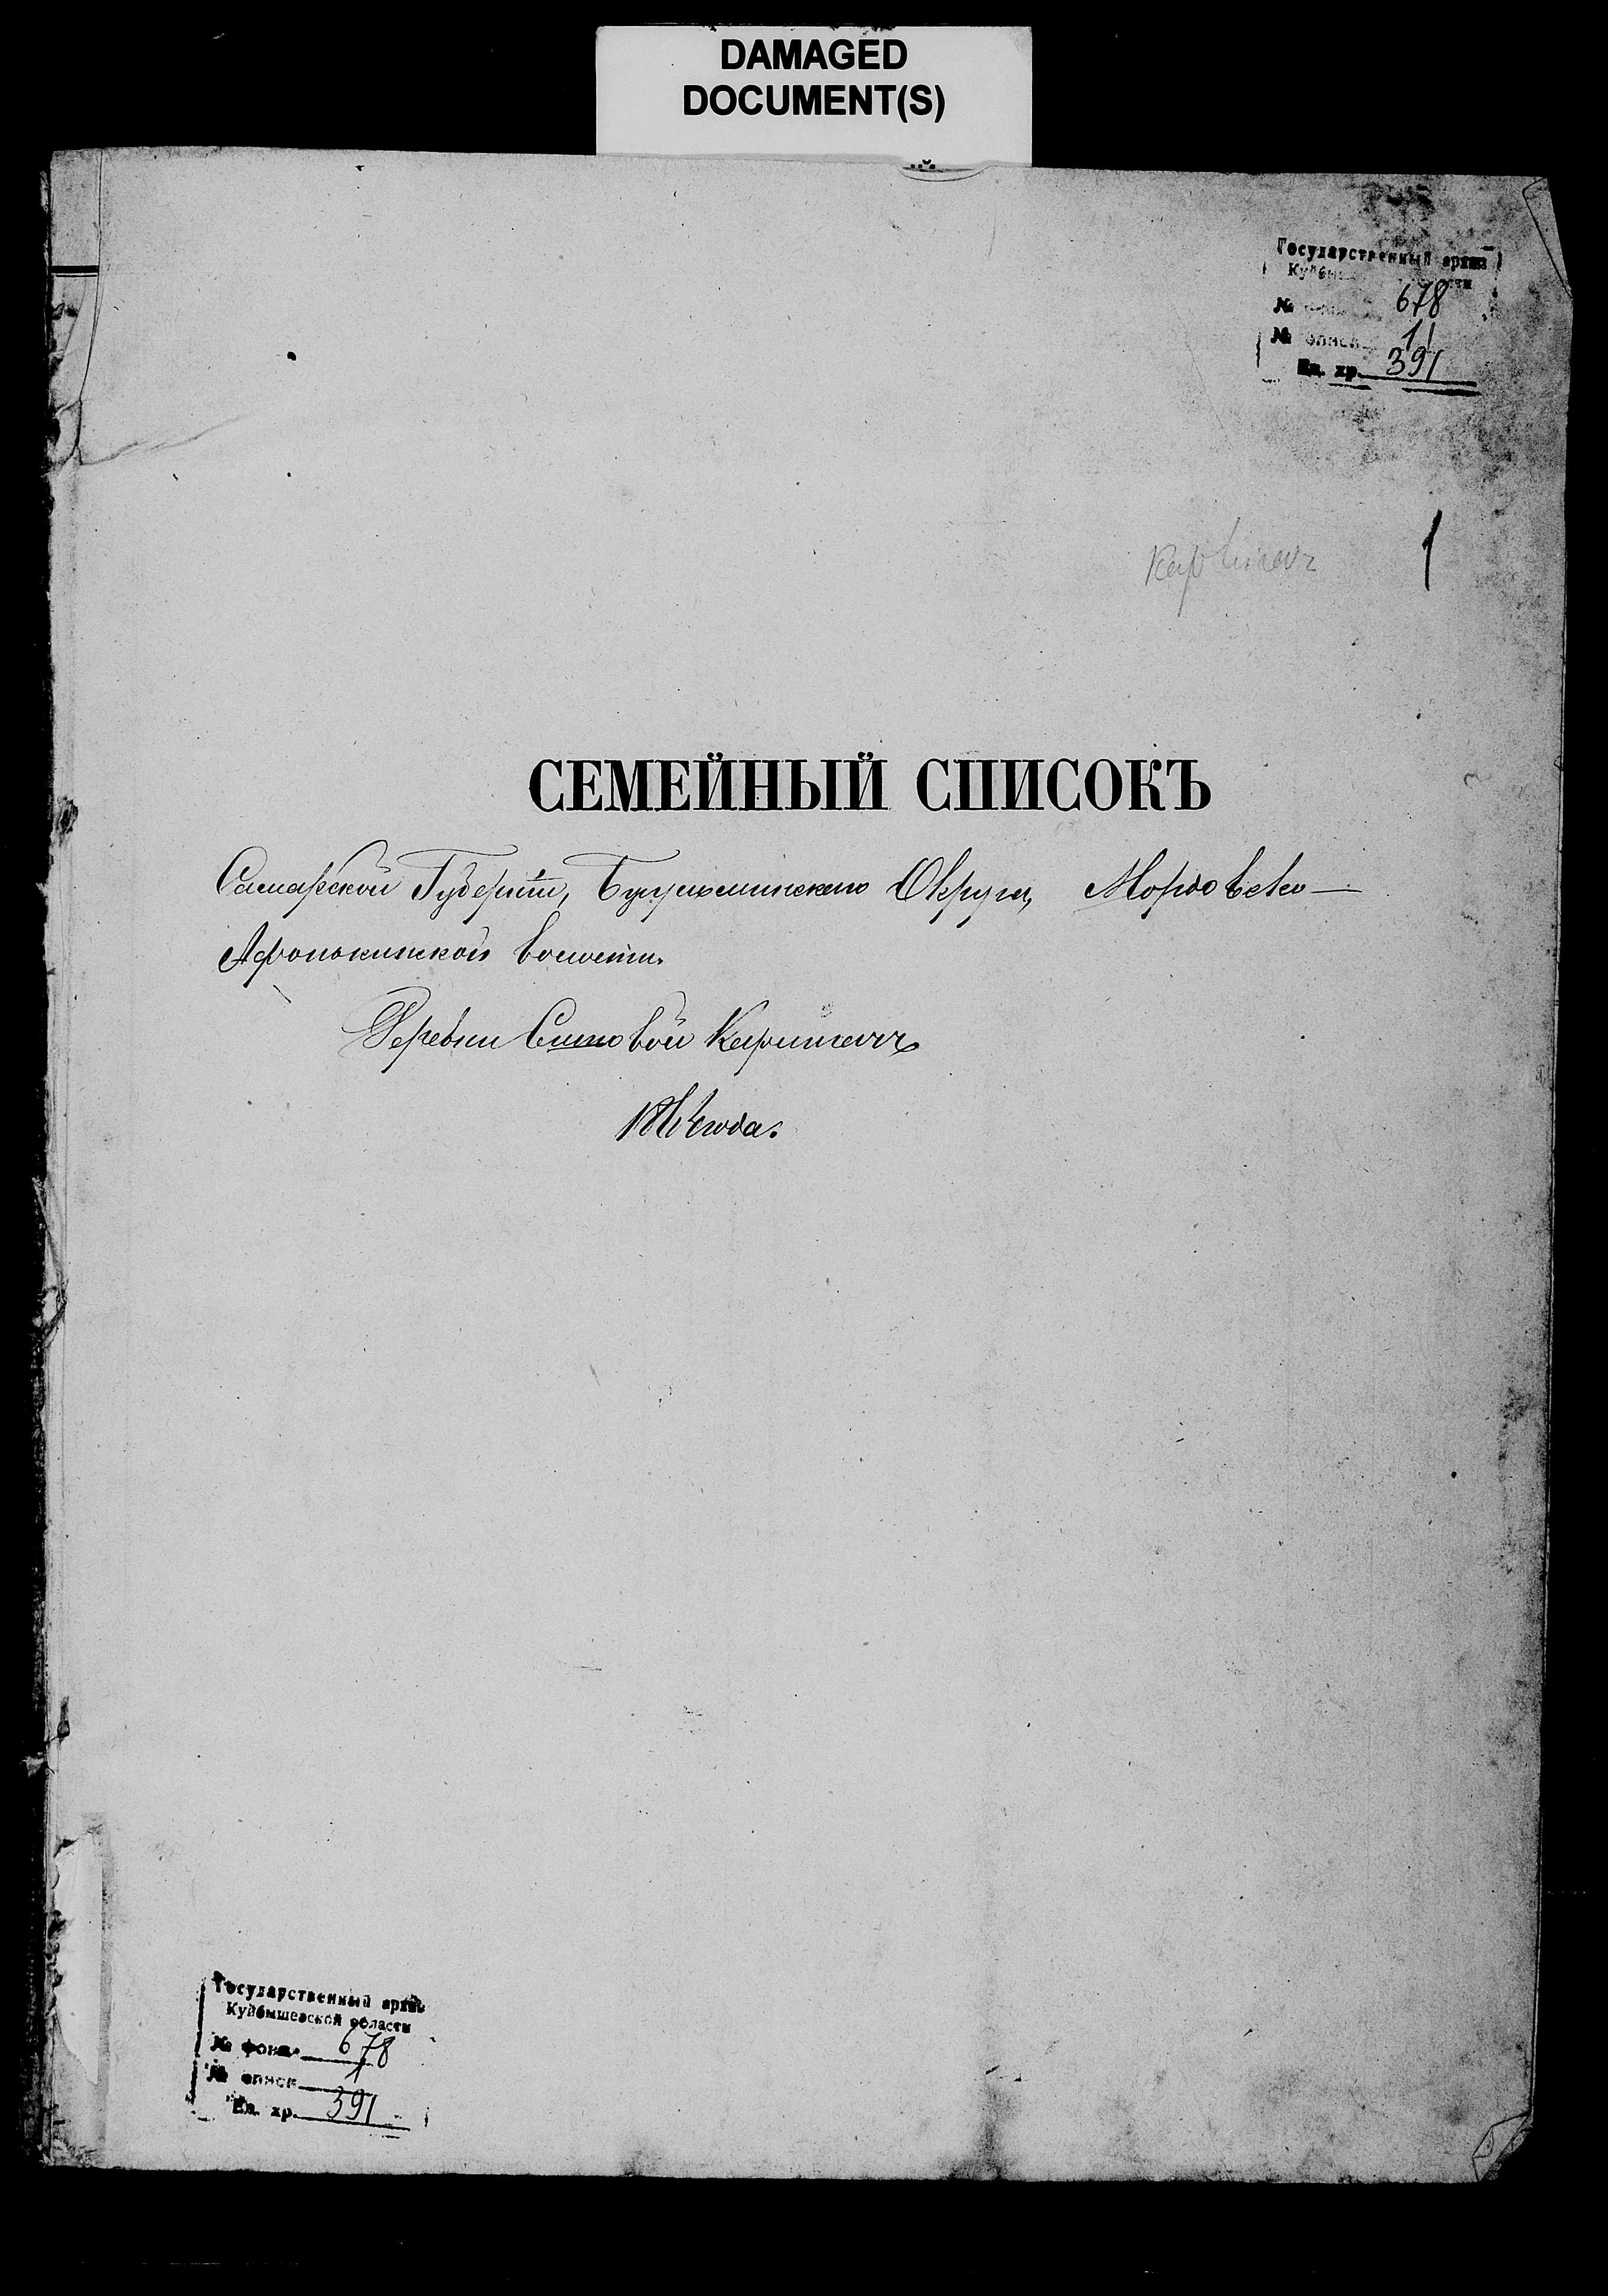 DAMAGED
DOCUMENT(S)
Государственный архив
№ 678
№ описи 1
Ед. хр. 391
1
СЕМЕЙНЫЙ СПИСОКЪ
Самарской Губерніи, Бугульминскаго Округа, Мордовско-
Афонькинской волости.
Деревни Кармалки
года.
Государственный архив
Куйбышевской области
№ фонда 678
№ описи 1
Ед. хр. 391